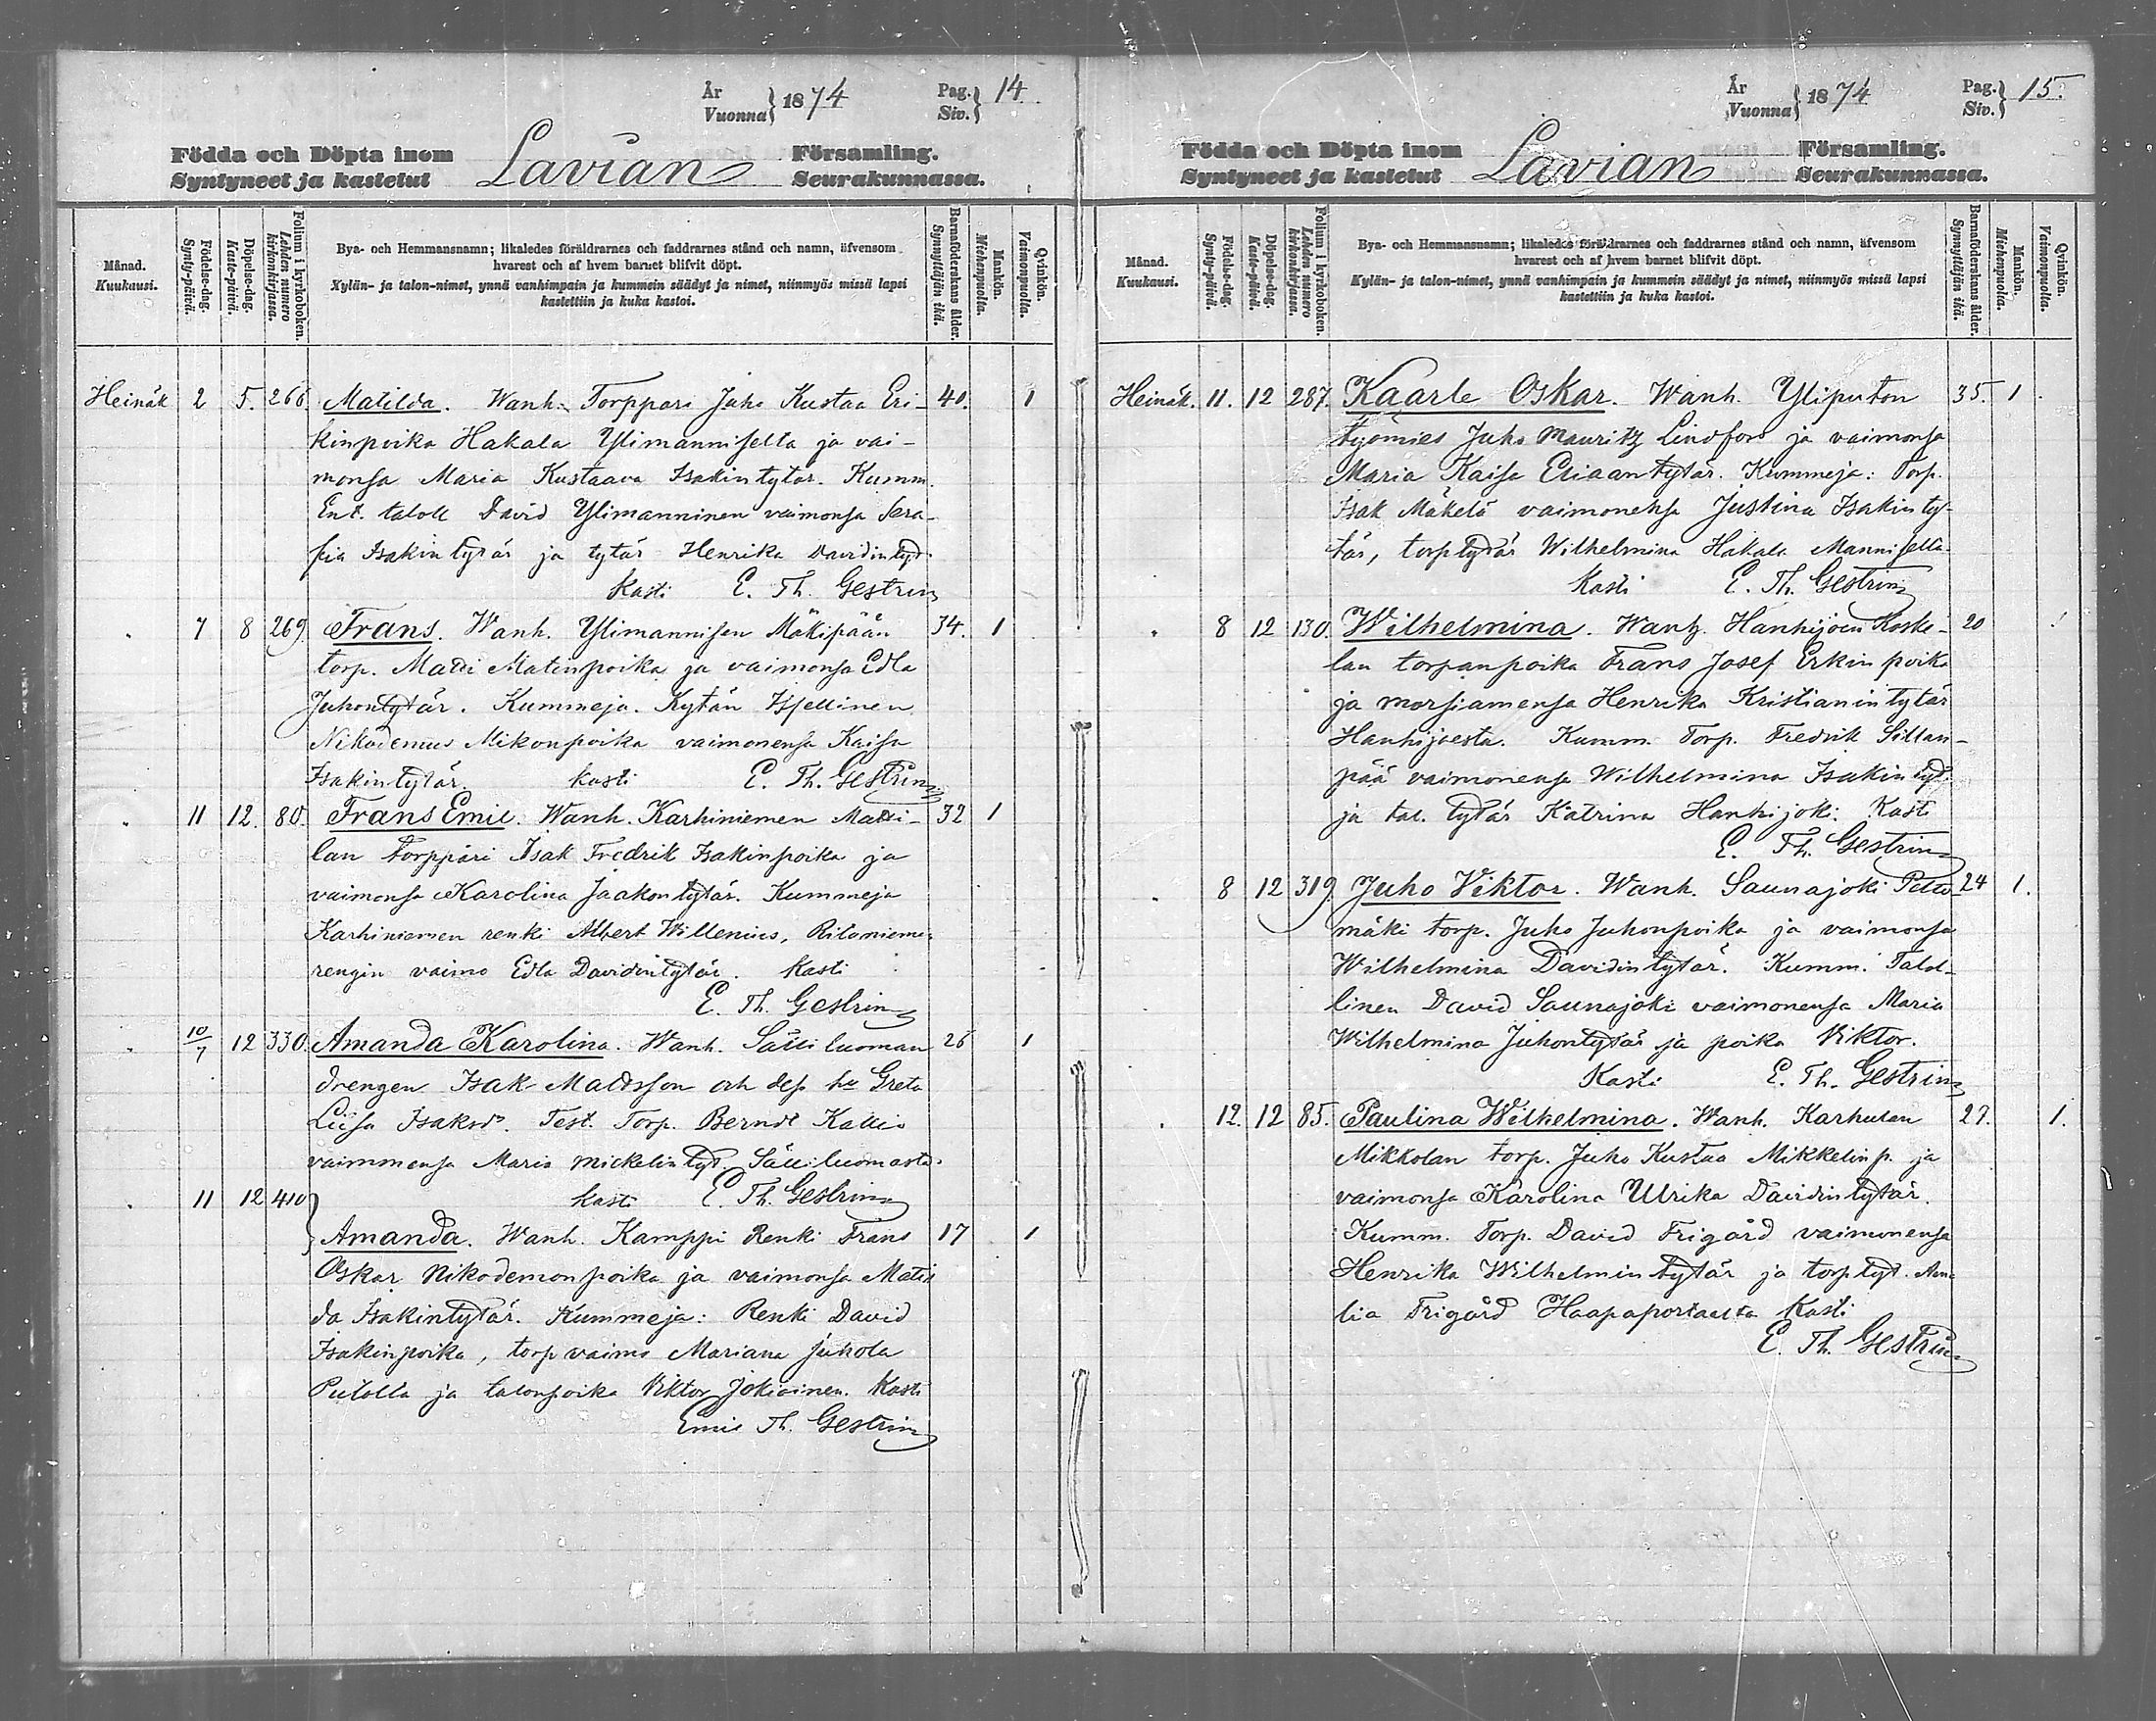 År
Vuonna } 1874
Pag.
Siv. } 14.
Födda och Döpta inom
Syntyneet ja kastetut
Lavian
Församling.
Seurakunnassa.
Månad.
Kuukausi.
Födelse-dag.
Synty-päivä.
Döpelse-dag.
Kaste-päivä.
Folium i kyrkoboken.
Lehden numero
kirkonkirjassa.
Bya- och Hemmansnamn; likaledes föräldrarnes och faddrarnes stånd och namn, äfvensom
hvarest och af hvem barnet blifvit döpt.
Kylän- ja talon-nimet, ynnä vanhimpain ja kummein säädyt ja nimet, niinmyös missä lapsi
kastettiin ja kuka kastoi.
Barnaföderskans ålder.
Synnyttäjän ikä.
Mankön.
Miehenpuolta.
Qvinkön.
Vaimonpuolta.
Heinäk 2 5. 266. Matilda. Wanh. Torppari Juho Kustaa Eri- 40. 1
kinpoika Hakala Ylimanniselta ja vai-
monsa Maria Kustaava Isakintytär. Kumm.
Ent. taloll David Ylimanninen vaimonsa Sera-
fia Isakintytär ja tytär Henrika Davidintyt.
Kasti E. Th. Gestrin
" 7 8 269. Frans. Wanh. Ylimannisen Mäkipään 34. 1
torp. Matti Matinpoika ja vaimonsa Edla
Juhontytär. Kummeja. Kytän Itsellinen
Nikodemus Mikonpoika vaimonensa Kaisa
Isakintytär. kasti E. Th. Gestrin
" 11 12. 80. Frans Emil. Wanh. Karhiniemen Matti- 32 1
lan torppari Isak Fredrik Isakinpoika ja
vaimonsa Karolina Jaakontytär. Kummeja
Karhiniemen renki Albert Willenius, Ritaniemen
rengin vaimo Edla Davidintytär. Kasti
E. Th. Gestrin
" 10/7 12 330. Amanda Karolina. Wanh. Sättiluoman 26 1
drengen Isak Mattsson och dess hu Greta
Liisa Isaksdr. Test. Torp. Berndt Kallio
vaimonensa Maria Mickelintyt. Säkiluomasta.
" 11 12 410 kasti E. Th. Gestrin
Amanda. Wanh. Kamppi Renki Frans 17 1
Oskar Nikodemonpoika ja vaimonsa Matil
da Isakintytär. Kummeja: Renki David
Isakinpoika, torp vaimo Mariana Juhola
Putolta ja talonpoika Viktor Jokioinen. Kasti
Emil Th. Gestrin
År
Vuonna } 1874
Pag.
Siv. } 15.
Födda och Döpta inom
Syntyneet ja kastetut
Lavian
Församling.
Seurakunnassa.
Månad.
Kuukausi.
Födelse-dag.
Synty-päivä.
Döpelse-dag.
Kaste-päivä.
Folium i kyrkoboken.
Lehden numero
kirkonkirjassa.
Bya- och Hemmansnamn; likaledes föräldrarnes och faddrarnes stånd och namn, äfvensom
hvarest och af hvem barnet blifvit döpt.
Kylän- ja talon-nimet, ynnä vanhimpain ja kummein säädyt ja nimet, niinmyös missä lapsi
kastettiin ja kuka kastoi.
Barnaföderskans ålder.
Synnyttäjän ikä.
Mankön.
Miehenpuolta.
Qvinkön.
Vaimonpuolta.
Heinäk. 11. 12 287. Kaarle Oskar. Wanh. Yliputon 35. 1
työmies Juho Mauritz Lindfors ja vaimonsa
Maria Kaisa Eliaantytär. Kummeja: Torp.
Isak Mäkelä vaimonensa Justina Isakinty-
tär, torptytär Wilhelmina Hakala Manniselta
Kasti E. Th. Gestrin
" 8 12 130. Wilhelmina. Wanh. Hanhijoen Koske- 20 1
lan torpanpoika Frans Josef Erkinpoika
ja morsiamensa Henrika Kristianintytär
Hanhijoesta. Kumm. Torp. Fredrik Siltan-
pää vaimonensa Wilhelmina Isakintyt.
ja tal. tytär Katrina Hanhijoki. Kasti
E. Th. Gestrin
" 8 12 319. Juho Viktor. Wanh. Saunajoki Petto- 24 1.
mäki torp. Juho Juhonpoika ja vaimonsa
Wilhelmina Davidintytär. Kumm. Talol-
linen David Saunajoki vaimonensa Maria
Wilhelmina Juhontytär ja poika Viktor.
Kasti E. Th. Gestrin
" 12. 12 85. Paulina Wilhelmina. Wanh. Karhulan 27. 1.
Mikkolan torp. Juho Kustaa Mikkelinp. ja
vaimonsa Karolina Ulrika Davidintytär.
Kumm. Torp. David Frigård vaimonensa
Henrika Wilhelmintytär ja torptyt. Ama
lia Frigård Haapaportaalta Kasti
E. Th. Gestrin